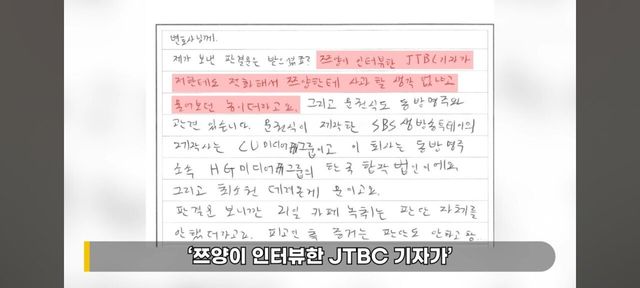 변호사님께!
제가 보낸 판결문은 받으셨죠? 쯔양이 인터뷰한 JTBC 기자가
저한테도 전화해서 쯔양한테 사과할 생각 없냐고
물어보던 놈이더라고요. 그리고 윤천식도 동방명주와
관련 있습니다. 윤천식이 제작한 SBS 생방송투데이의
제작사는 CU미디어그룹이고 이 회사는 동방명주
소속 HG미디어그룹의 한국 합작 법인이에요.
그리고 최소천 데려온게 윤이고요.
판결문 보니깐 21일 카페 녹취는 판단 자체를
안했더라고요. 피고인 측 증거는 판단도 안하고
‘쯔양이 인터뷰한 JTBC 기자가’